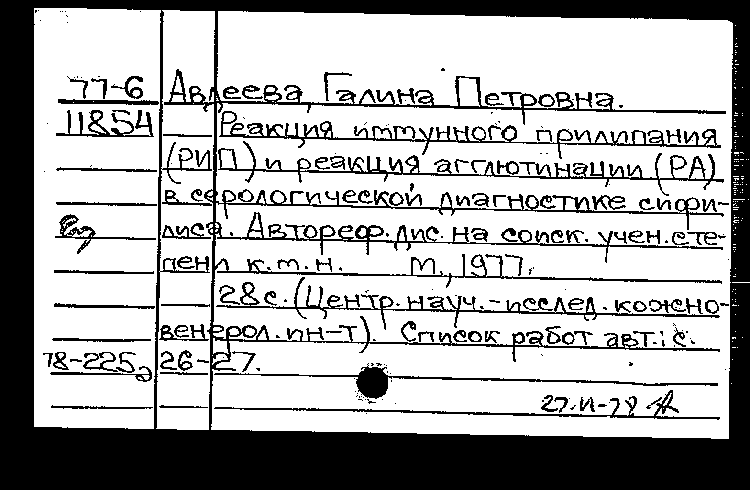 77-6 Авдеева, Галина Петровна.
11854 Реакция иммунного прилипания
(РИП) и реакция агглютинации (РА)
в серологической диагностике сифи-
лиса. Автореф. дис. на соиск. учен. сте-
пени к.м.н. М., 1977.
28с. (Центр. науч.-исслед. кожно-
венерол. ин-т). Список работ авт.: с.
78-225 26-27.